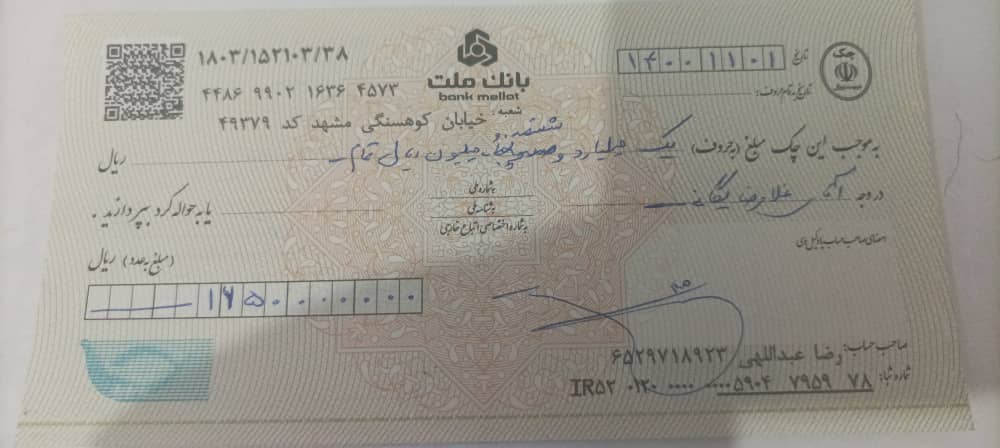 ۱۸۰۳/۱۵۲۱۰۳/۳۸
۴۴۸۶ ۹۹۰۲ ۱۶۳۶ ۴۵۷۳
بانک ملت
bank mellat
شعبه: خیابان کوهسنگی مشهد کد ۴۹۳۷۹
چک
تاریخ ۱۴۰۰۱۱۰۱
تاریخ به تمام حروف:
به موجب این چک مبلغ (بحروف) یک میلیارد و ششصد و پنجاه میلیون ریال تمام ریال
در وجه آقای علیرضا یگانه یا به حواله کرد بپردازید.
به شماره ملی
به شناسه ملی
به شماره اختصاصی اتباع خارجی
امضای صاحب حساب یا وکیل وی
(مبلغ به عدد) ریال
۱۶۵۰۰۰۰۰۰۰
صاحب حساب: رضا عبداللهی ۶۵۲۹۷۱۸۹۲۳
شماره شبا: IR۵۲ ۰۱۲۰ ۰۰۰۰ ۰۰۰۰ ۵۹۰۴ ۷۹۵۹ ۷۸